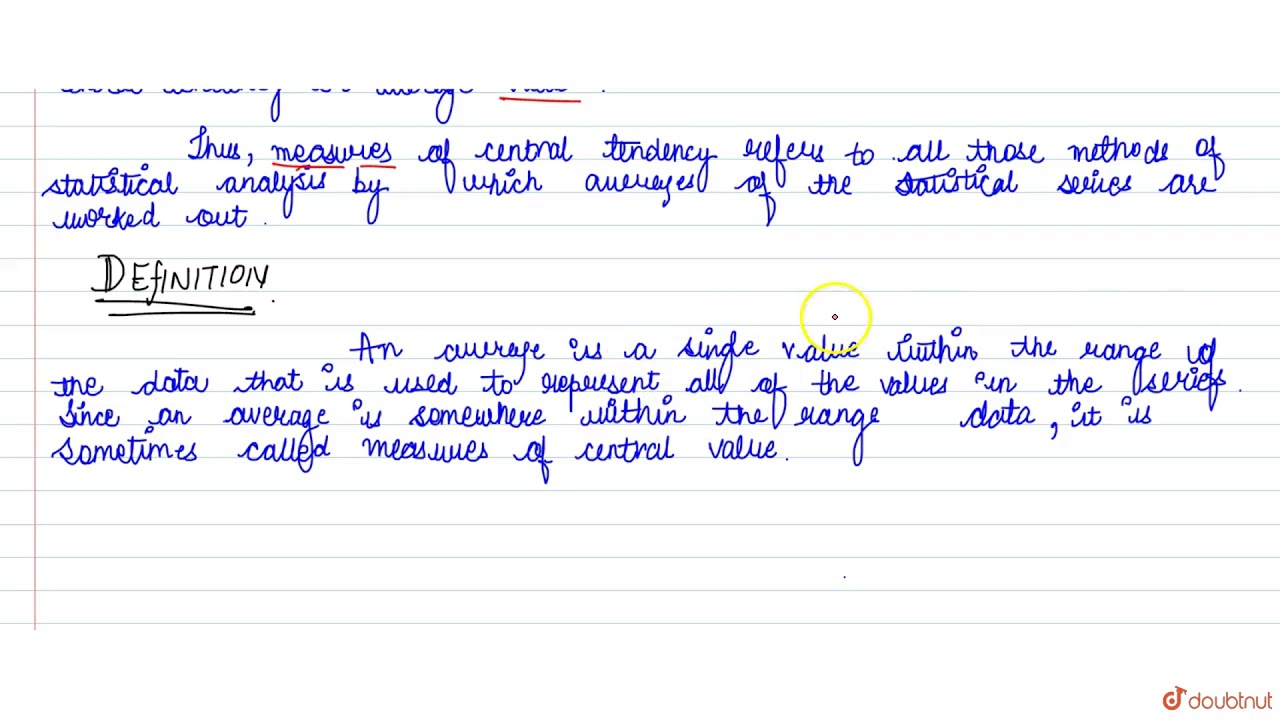 average
Thus, measures of central tendency refers to all those methods of
statistical analysis by which averages of the statistical series are
worked out.
DEfINITION.
An average is a single value within the range of
the data that is used to represent all of the values in the series.
Since an average is somewhere within the range data, it is
sometimes called measures of central value.
doubtnut